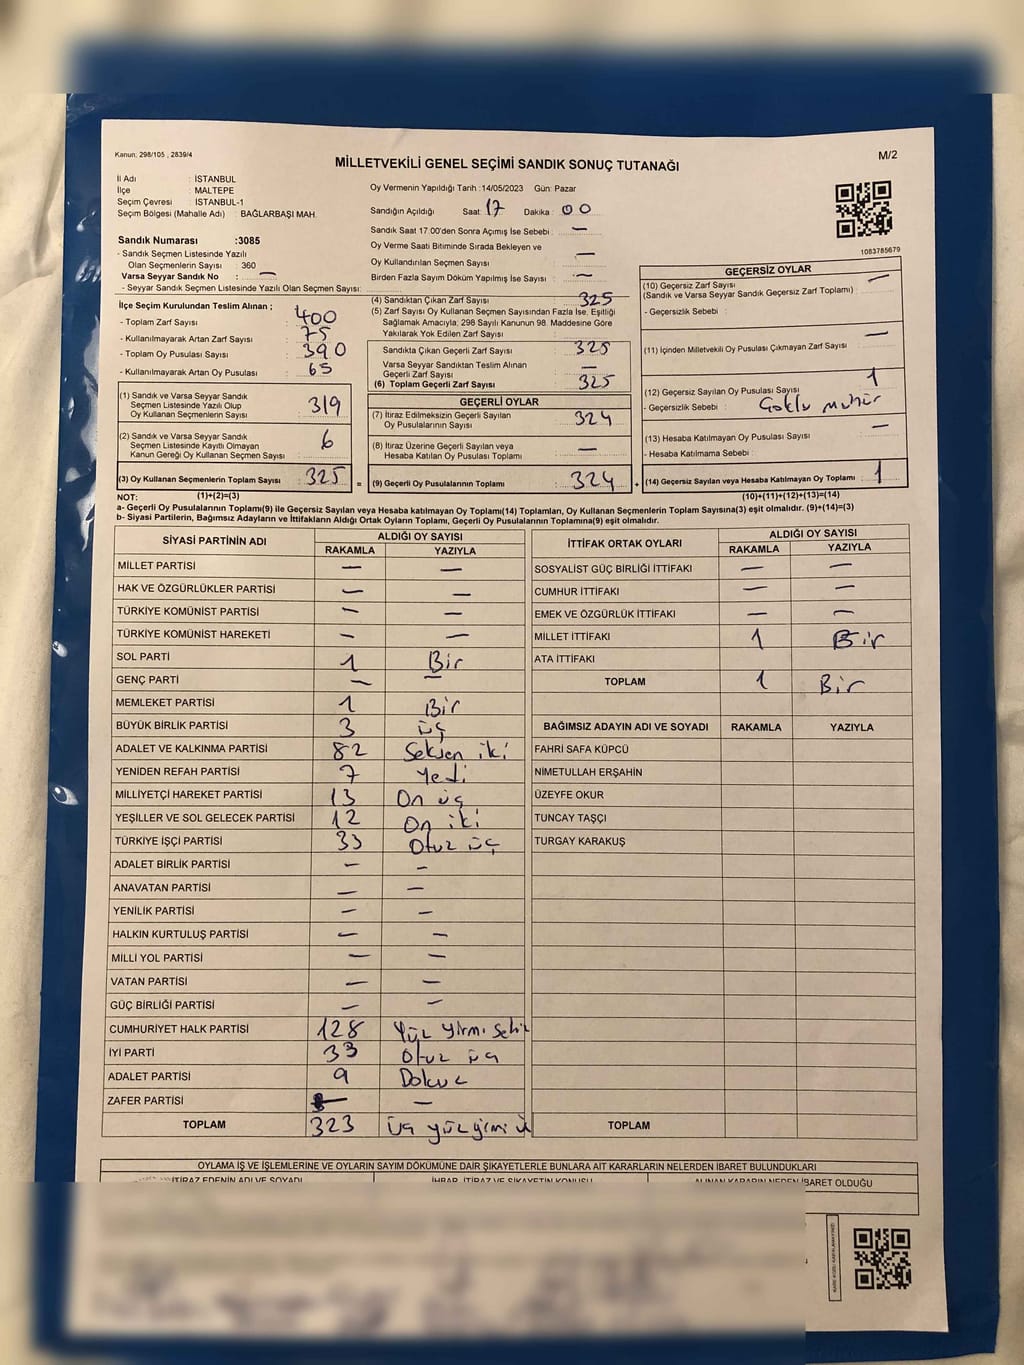 Kanun: 298/105 , 2839/4
MİLLETVEKİLİ GENEL SEÇİMİ SANDIK SONUÇ TUTANAĞI
M/2
İl Adı : İSTANBUL
İlçe : MALTEPE
Seçim Çevresi : İSTANBUL-1
Seçim Bölgesi (Mahalle Adı) : BAĞLARBAŞI MAH.
Sandık Numarası :3085
- Sandık Seçmen Listesinde Yazılı
Olan Seçmenlerin Sayısı : 360
Varsa Seyyar Sandık No : —
- Seyyar Sandık Seçmen Listesinde Yazılı Olan Seçmen Sayısı:
Oy Vermenin Yapıldığı Tarih :14/05/2023 Gün: Pazar
Sandığın Açıldığı Saat: 17 Dakika : 00
Sandık Saat 17.00'den Sonra Açımış İse Sebebi : —
Oy Verme Saati Bitiminde Sırada Bekleyen ve
Oy Kullandırılan Seçmen Sayısı : —
Birden Fazla Sayım Döküm Yapılmış İse Sayısı : —
1083785679
İlçe Seçim Kurulundan Teslim Alınan ;
- Toplam Zarf Sayısı : 400
- Kullanılmayarak Artan Zarf Sayısı : 75
- Toplam Oy Pusulası Sayısı : 390
- Kullanılmayarak Artan Oy Pusulası : 65
(1) Sandık ve Varsa Seyyar Sandık
Seçmen Listesinde Yazılı Olup
Oy Kullanan Seçmenlerin Sayısı : 319
(2) Sandık ve Varsa Seyyar Sandık
Seçmen Listesinde Kayıtlı Olmayan
Kanun Gereği Oy Kullanan Seçmen Sayısı : 6
(3) Oy Kullanan Seçmenlerin Toplam Sayısı : 325
(4) Sandıktan Çıkan Zarf Sayısı : 325
(5) Zarf Sayısı Oy Kullanan Seçmen Sayısından Fazla İse, Eşitliği
Sağlamak Amacıyla; 298 Sayılı Kanunun 98. Maddesine Göre
Yakılarak Yok Edilen Zarf Sayısı :
Sandıkta Çıkan Geçerli Zarf Sayısı : 325
Varsa Seyyar Sandıktan Teslim Alınan
Geçerli Zarf Sayısı : —
(6) Toplam Geçerli Zarf Sayısı : 325
GEÇERLİ OYLAR
(7) İtiraz Edilmeksizin Geçerli Sayılan
Oy Pusulalarının Sayısı : 324
(8) İtiraz Üzerine Geçerli Sayılan veya
Hesaba Katılan Oy Pusulası Toplamı : —
= (9) Geçerli Oy Pusulalarının Toplamı : 324
GEÇERSİZ OYLAR
(10) Geçersiz Zarf Sayısı
(Sandık ve Varsa Seyyar Sandık Geçersiz Zarf Toplamı) : —
- Geçersizlik Sebebi :
(11) İçinden Milletvekili Oy Pusulası Çıkmayan Zarf Sayısı : —
(12) Geçersiz Sayılan Oy Pusulası Sayısı : 1
- Geçersizlik Sebebi : Çoklu mühür
(13) Hesaba Katılmayan Oy Pusulası Sayısı : —
- Hesaba Katılmama Sebebi :
+ (14) Geçersiz Sayılan veya Hesaba Katılmayan Oy Toplamı : 1
NOT: (1)+(2)=(3) (10)+(11)+(12)+(13)=(14)
a- Geçerli Oy Pusulalarının Toplamı(9) ile Geçersiz Sayılan veya Hesaba Katılmayan Oy Toplamı(14) Toplamları, Oy Kullanan Seçmenlerin Toplam Sayısına(3) eşit olmalıdır. (9)+(14)=(3)
b- Siyasi Partilerin, Bağımsız Adayların ve İttifakların Aldığı Ortak Oyların Toplamı, Geçerli Oy Pusulalarının Toplamına(9) eşit olmalıdır.
SİYASİ PARTİNİN ADI ALDIĞI OY SAYISI
RAKAMLA YAZIYLA
MİLLET PARTİSİ — —
HAK VE ÖZGÜRLÜKLER PARTİSİ — —
TÜRKİYE KOMÜNİST PARTİSİ — —
TÜRKİYE KOMÜNİST HAREKETİ — —
SOL PARTİ 1 Bir
GENÇ PARTİ — —
MEMLEKET PARTİSİ 1 Bir
BÜYÜK BİRLİK PARTİSİ 3 üç
ADALET VE KALKINMA PARTİSİ 82 Seksen iki
YENİDEN REFAH PARTİSİ 7 Yedi
MİLLİYETÇİ HAREKET PARTİSİ 13 On üç
YEŞİLLER VE SOL GELECEK PARTİSİ 12 On iki
TÜRKİYE İŞÇİ PARTİSİ 33 Otuz üç
ADALET BİRLİK PARTİSİ — —
ANAVATAN PARTİSİ — —
YENİLİK PARTİSİ — —
HALKIN KURTULUŞ PARTİSİ — —
MİLLİ YOL PARTİSİ — —
VATAN PARTİSİ — —
GÜÇ BİRLİĞİ PARTİSİ — —
CUMHURİYET HALK PARTİSİ 128 Yüz yirmi sekiz
İYİ PARTİ 33 Otuz üç
ADALET PARTİSİ 9 Dokuz
ZAFER PARTİSİ — —
TOPLAM 323 üç yüz yirmi ü
İTTİFAK ORTAK OYLARI ALDIĞI OY SAYISI
RAKAMLA YAZIYLA
SOSYALİST GÜÇ BİRLİĞİ İTTİFAKI — —
CUMHUR İTTİFAKI — —
EMEK VE ÖZGÜRLÜK İTTİFAKI — —
MİLLET İTTİFAKI 1 Bir
ATA İTTİFAKI
TOPLAM 1 Bir
BAĞIMSIZ ADAYIN ADI VE SOYADI RAKAMLA YAZIYLA
FAHRİ SAFA KÜPCÜ
NİMETULLAH ERŞAHİN
ÜZEYFE OKUR
TUNCAY TAŞÇI
TURGAY KARAKUŞ
TOPLAM
OYLAMA İŞ VE İŞLEMLERİNE VE OYLARIN SAYIM DÖKÜMÜNE DAİR ŞİKAYETLERLE BUNLARA AİT KARARLARIN NELERDEN İBARET BULUNDUKLARI
İTİRAZ EDENİN ADI VE SOYADI İHBAR, İTİRAZ VE ŞİKAYETİN KONUSU ALINAN KARARIN NEDEN İBARET OLDUĞU